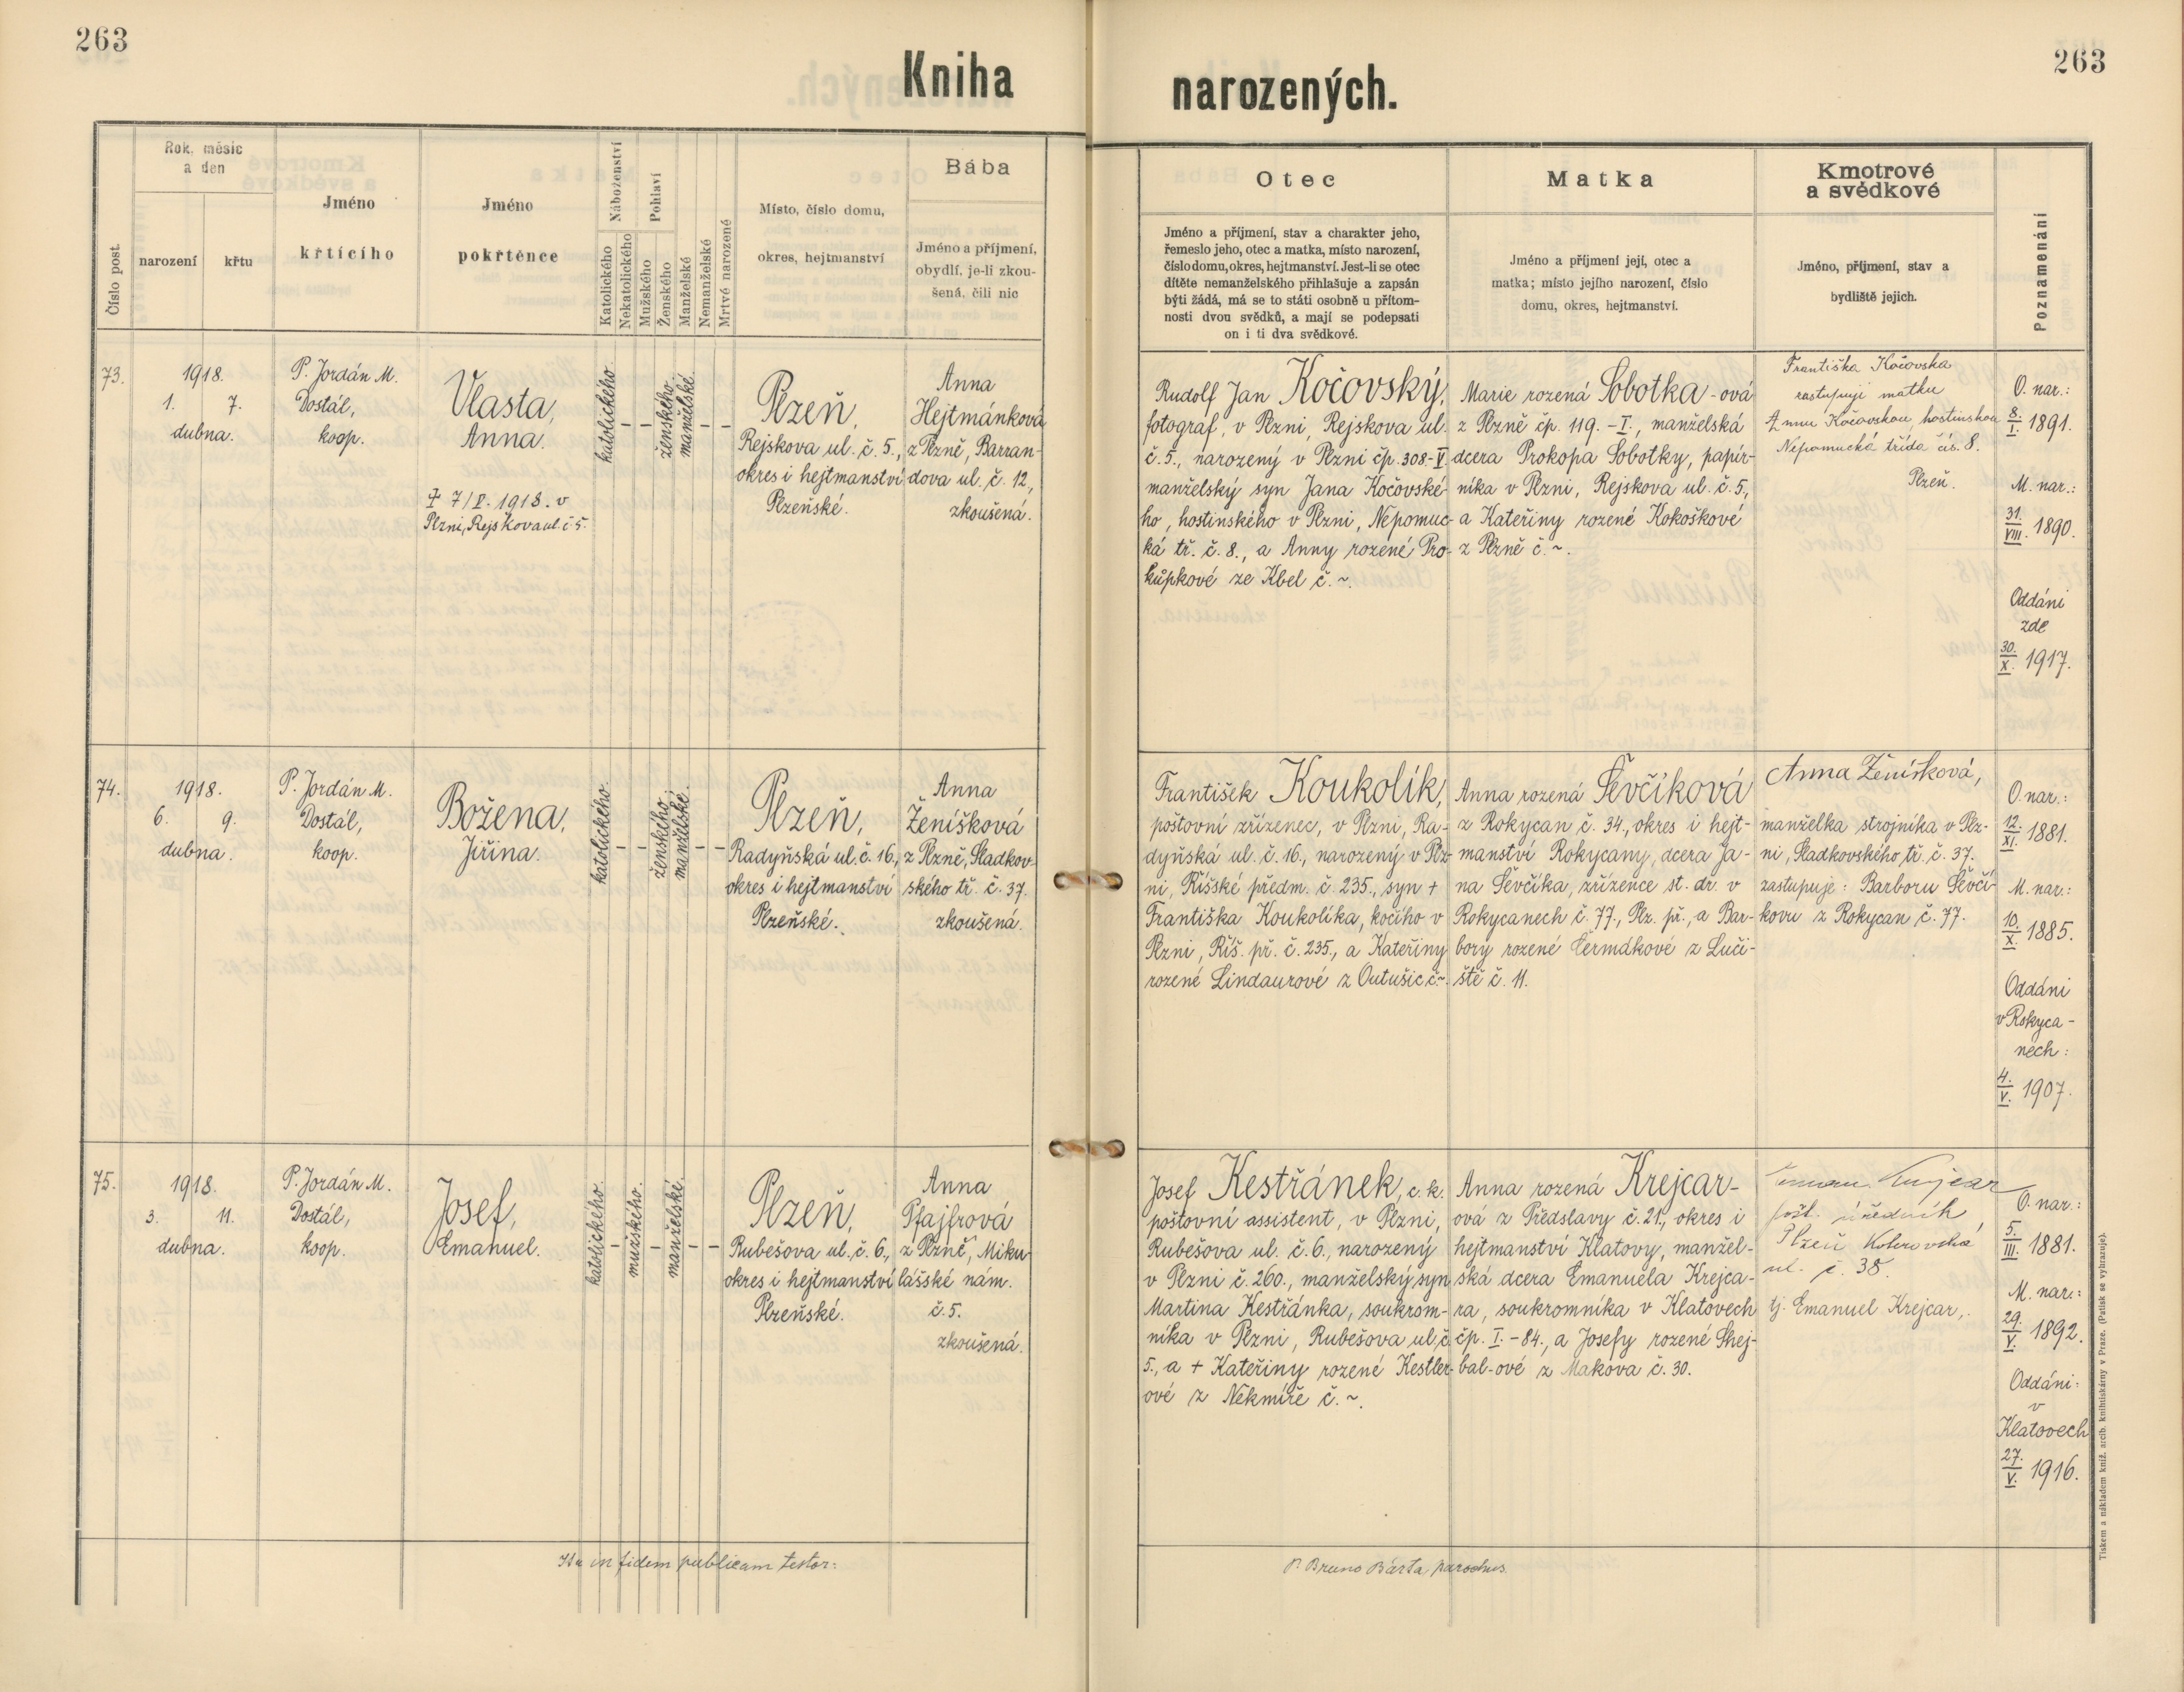 263
Kniha
Číslo post.
Rok, měsíc
a den
narození
křtu
Jméno
křtícího
Jméno
pokřtěnce
Náboženství
Katolického
Nekatolického
Pohlaví
Mužského
Ženského
Manželské
Nemanželské
Mrtvé narozené
Místo, číslo domu,
okres, hejtmanství
Bába
Jméno a příjmení,
obydlí, je-li zkou-
šená, čili nic
73.
1918.
1. 7.
dubna.
P. Jordán M.
Dostál,
koop.
Vlasta,
Anna.
katolického.
–
–
ženského.
manželské.
–
–
Plzeň,
Rejskova ul. č. 5.,
okres i hejtmanství
Plzeňské.
Anna
Hejtmánková
z Plzně, Barran-
dova ul. č. 12,
zkoušená.
‡ 7/V. 1918. v
Plzni, Rejskova ul. č 5.
74.
1918.
6. 9.
dubna.
P. Jordán M.
Dostál,
koop.
Božena,
Jiřina.
katolického.
–
–
ženského.
manželské.
–
–
Plzeň,
Radyňská ul. č. 16.,
okres i hejtmanství
Plzeňské.
Anna
Ženíšková
z Plzně, Sladkov-
ského tř. č. 37.
zkoušená.
75.
1918.
3. 11.
dubna.
P. Jordán M.
Dostál,
koop.
Josef,
Emanuel.
katolického.
–
mužského.
–
manželské.
–
–
Plzeň,
Rubešova ul. č. 6.,
okres i hejtmanství
Plzeňské.
Anna
Pfajfrová
z Plzně, Miku-
lášské nám.
č. 5.
zkoušená.
Ita in fidem publicam testor:
263
narozených.
Otec
Jméno a příjmení, stav a charakter jeho,
řemeslo jeho, otec a matka, místo narození,
číslo domu, okres, hejtmanství. Jest-li se otec
dítěte nemanželského přihlašuje a zapsán
býti žádá, má se to státi osobně u přítom-
nosti dvou svědků, a mají se podepsati
on i ti dva svědkové.
Matka
Jméno a příjmení její, otec a
matka; místo jejího narození, číslo
domu, okres, hejtmanství.
Kmotrové
a svědkové
Jméno, příjmení, stav a
bydliště jejich.
Poznamenání
Rudolf Jan Kočovský,
fotograf, v Plzni, Rejskova ul.
č. 5., narozený v Plzni čp. 308.-V.
manželský syn Jana Kočovské-
ho, hostinského v Plzni, Nepomuc-
ká tř. č. 8., a Anny rozené Pro-
kůpkové ze Kbel č. ~.
Marie rozená Sobotka-ová
z Plzně čp. 119. - I., manželská
dcera Prokopa Sobotky, papír-
níka v Plzni, Rejskova ul. č. 5.,
a Kateřiny rozené Kokoškové
z Plzně č. ~.
Františka Kočovska
zastupuji matku
Annu Kočovskou, hostinskou
Nepomucká třída čís. 8.
Plzeň.
O. nar.:
8./I. 1891.
M. nar.:
31./VIII. 1890.
Oddáni
zde
30./X. 1917.
František Koukolík,
poštovní zřízenec, v Plzni, Ra-
dyňská ul. č. 16., narozený v Plz-
ni, Říšské předm. č. 235., syn +
Františka Koukolíka, kočího v
Plzni, Říš. př. č. 235., a Kateřiny
rozené Lindaurové z Outušic č. ~.
Anna rozená Ševčíková
z Rokycan č. 34., okres i hejt-
manství Rokycany, dcera Ja-
na Ševčíka, zřízence st. dr. v
Rokycanech č. 77., Plz. př., a Bar-
bory rozené Čermákové z Luči-
ště č. 11.
Anna Ženíšková,
manželka strojníka v Plz-
ni, Sladkovského tř. č. 37.
zastupuje: Barboru Ševčí-
kovu z Rokycan č. 77.
O. nar.:
12./XI. 1881.
M. nar.:
10./X. 1885.
Oddáni
v Rokyca-
nech:
4./V. 1907.
Josef Kestřánek, c. k.
poštovní assistent, v Plzni,
Rubešova ul. č. 6., narozený
v Plzni č. 260., manželský syn
Martina Kestřánka, soukrom-
níka v Plzni, Rubešova ul. č.
5., a + Kateřiny rozené Kestler-
ové z Nekmíře č. ~.
Anna rozená Krejcar-
ová z Předslavy č. 21., okres i
hejtmanství Klatovy, manžel-
ská dcera Emanuela Krejca-
ra, soukromníka v Klatovech
čp. I. - 84., a Josefy rozené Skej-
bal-ové z Makova č. 30.
Krejcar
pošt. úředník
Plzeň
ul. č. 38.
tj. Emanuel Krejcar,.
O. nar.:
5./III. 1881.
M. nar.:
29./V. 1892.
Oddáni:
v
Klatovech
27./V. 1916.
P. Bruno Bárta, parochus.
Tiskem a nákladem kníž. arcib. knihtiskárny v Praze. (Patisk se vyhrazuje).